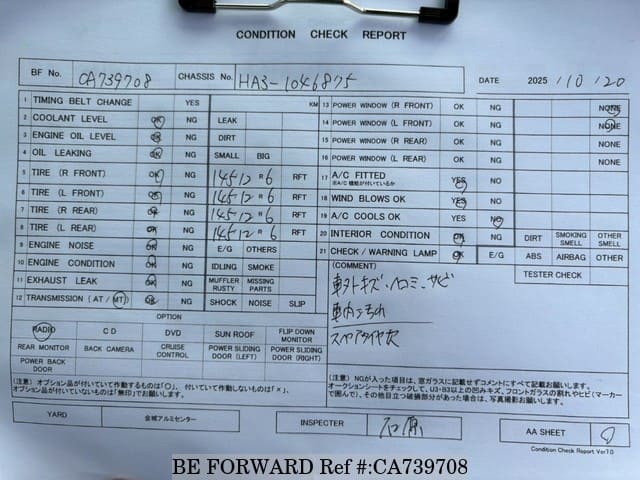 CONDITION CHECK REPORT
BF No. CA739708 CHASSIS No. HA3-1046875 DATE 2025 / 10 / 20
1 TIMING BELT CHANGE YES KM
2 COOLANT LEVEL OK NG LEAK
3 ENGINE OIL LEVEL OK NG DIRT
4 OIL LEAKING OK NG SMALL BIG
5 TIRE (R FRONT) OK NG 145-12 R 6 RFT
6 TIRE (L FRONT) OK NG 145-12 R 6 RFT
7 TIRE (R REAR) OK NG 145-12 R 6 RFT
8 TIRE (L REAR) OK NG 145-12 R 6 RFT
9 ENGINE NOISE OK NG E/G OTHERS
10 ENGINE CONDITION OK NG IDLING SMOKE
11 EXHAUST LEAK OK NG MUFFLER RUSTY MISSING PARTS
12 TRANSMISSION (AT / MT) OK NG SHOCK NOISE SLIP
13 POWER WINDOW (R FRONT) OK NG NONE
14 POWER WINDOW (L FRONT) OK NG NONE
15 POWER WINDOW (R REAR) OK NG NONE
16 POWER WINDOW (L REAR) OK NG NONE
17 A/C FITTED YES NO
※A/C 機能が付いているか
18 WIND BLOWS OK YES NO
19 A/C COOLS OK YES NO
20 INTERIOR CONDITION OK NG DIRT SMOKING SMELL OTHER SMELL
21 CHECK / WARNING LAMP OK NG E/G ABS AIRBAG OTHER
(COMMENT) TESTER CHECK
車外キズ・ヘコミ・サビ
車内よごれ
スペアタイヤ欠
OPTION
RADIO CD DVD SUN ROOF FLIP DOWN MONITOR
REAR MONITOR BACK CAMERA CRUISE CONTROL POWER SLIDING DOOR (LEFT) POWER SLIDING DOOR (RIGHT)
POWER BACK DOOR
(注意) オプション品が付いていて作動するものは「○」、付いていて作動しないものは「×」、
付いていないものは「無印」でお願いします。
(注意) NGが入った項目は、窓ガラスに記載せずコメントにすべて記載お願いします。
オークションシートをチェックして、U3・B3以上の凹みキズ、フロントガラスの割れやヒビ(マーカー
で囲んで)、その他目立つ破損部分があった場合は、写真撮影お願いします。
YARD 金城アルミセンター INSPECTER 石原 AA SHEET
Condition Check Report Ver1.0
BE FORWARD Ref #:CA739708